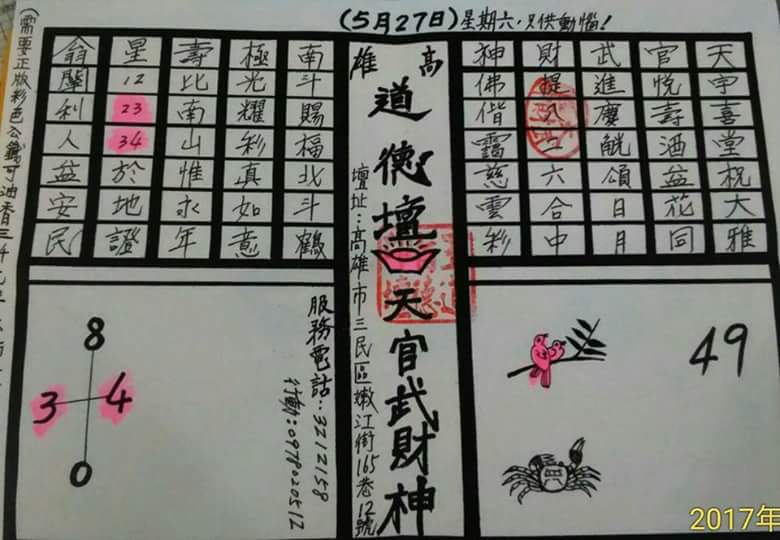 (5月27日)星期六,只供動惱!
天宇喜堂祝大雅
官悅壽酒盆花同
武進賡觥頌日月
財提八二六合中
神佛偕靄慈雲彩
49
高雄
道德壇天官武財神
壇址:高雄市三民區嫩江街165巷12號
南斗賜福北斗鶴
極光耀彩真如意
壽比南山惟永年
星12 23 34於地證
翁闔利人盆安民
服務電話:3212158
行動:0978020512
8
3 4
0
(需要正版彩色公籤可油香三
2017年